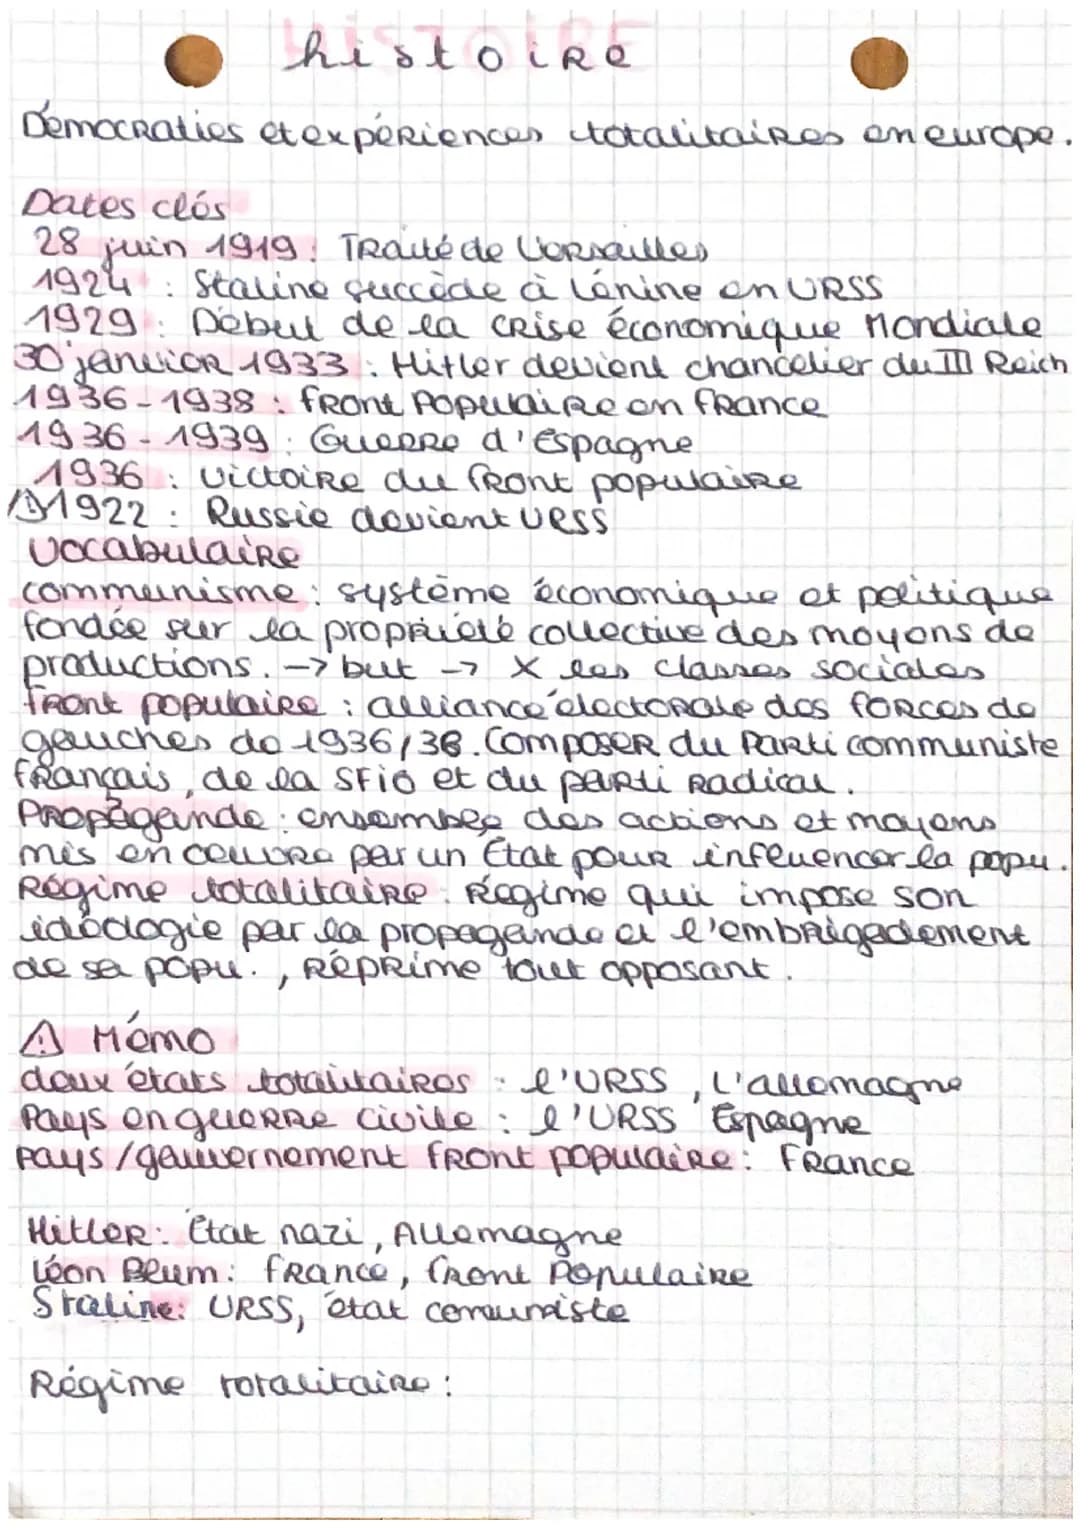 HISTOIRE
histoire
Démocraties et expériences totalitaires en europe.
Dates clés
28 juin 1919 : Traité de Versailles
1924 : Staline succède à Lénine en URSS
1929 : Début de la crise économique Mondiale
30 janvier 1933 : Hitler devient chancelier du III Reich
1936-1938 : front Populaire en france
1936-1939 : Guerre d'Espagne
1936 : Victoire du front populaire
⚠ 1922 : Russie devient URSS
Vocabulaire
communisme : système économique et politique
fondée sur la propriété collective des moyens de
productions. -> but -> X les classes sociales
front populaire : alliance électorale des forces de
gauches de 1936/38. Composer du Parti communiste
français, de la SFIO et du parti Radical.
Propagande : ensembles des actions et moyens
mis en oeuvre par un État pour influencer la popu.
Régime totalitaire : Régime qui impose son
idéologie par la propagande et l'embrigadement
de sa popu., réprime tout opposant.
⚠ Mémo
deux états totalitaires : l'URSS, l'allemagne
Pays en guerre civile : l'URSS Espagne
pays/gouvernement front populaire : France
Hitler : État nazi, Allemagne
Léon Blum : france, front Populaire
Staline : URSS, état communiste
Régime totalitaire :